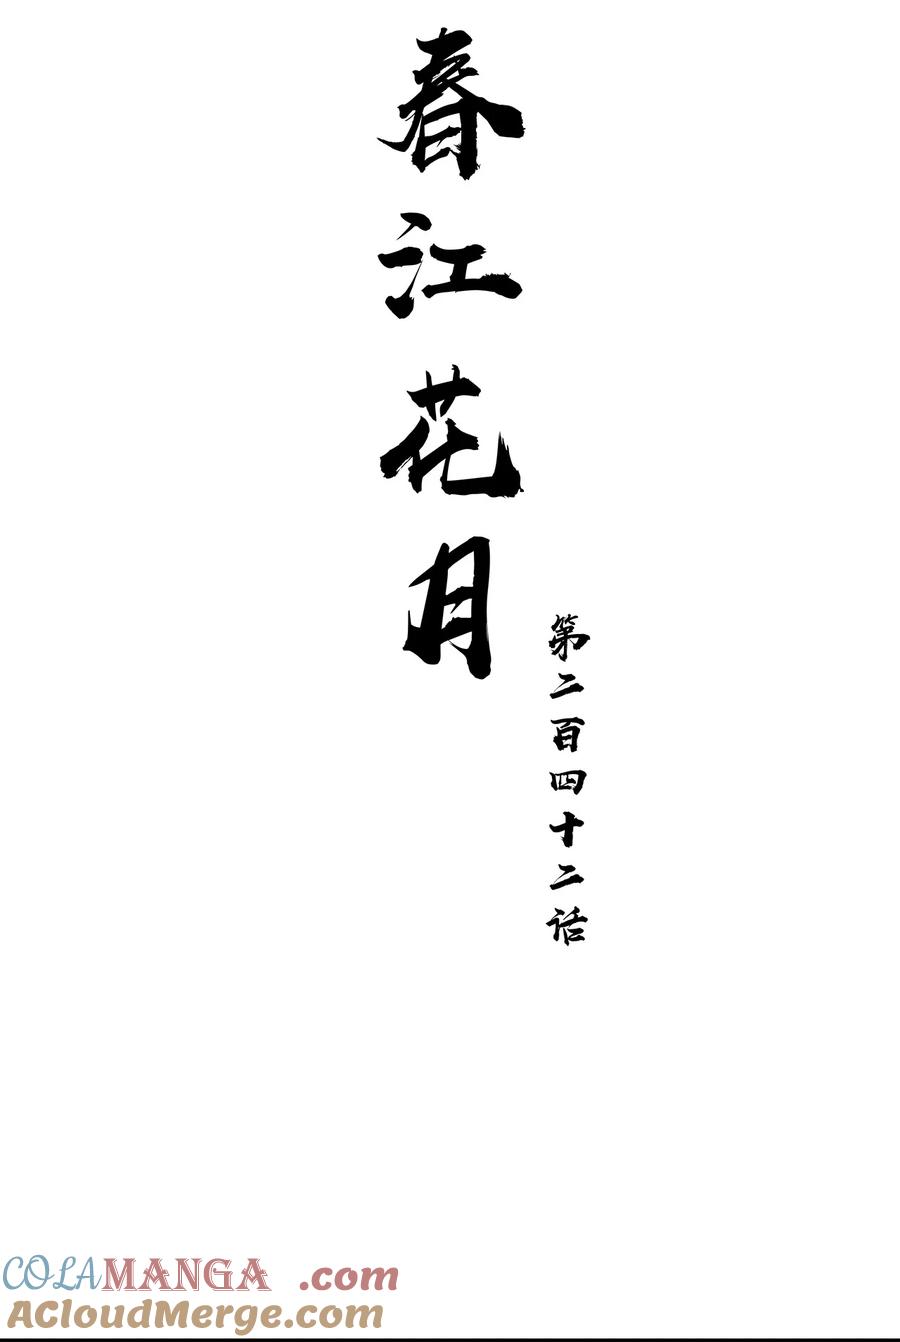 春江花月
第二百四十二话
COLAMANGA.com
ACloudMerge.com